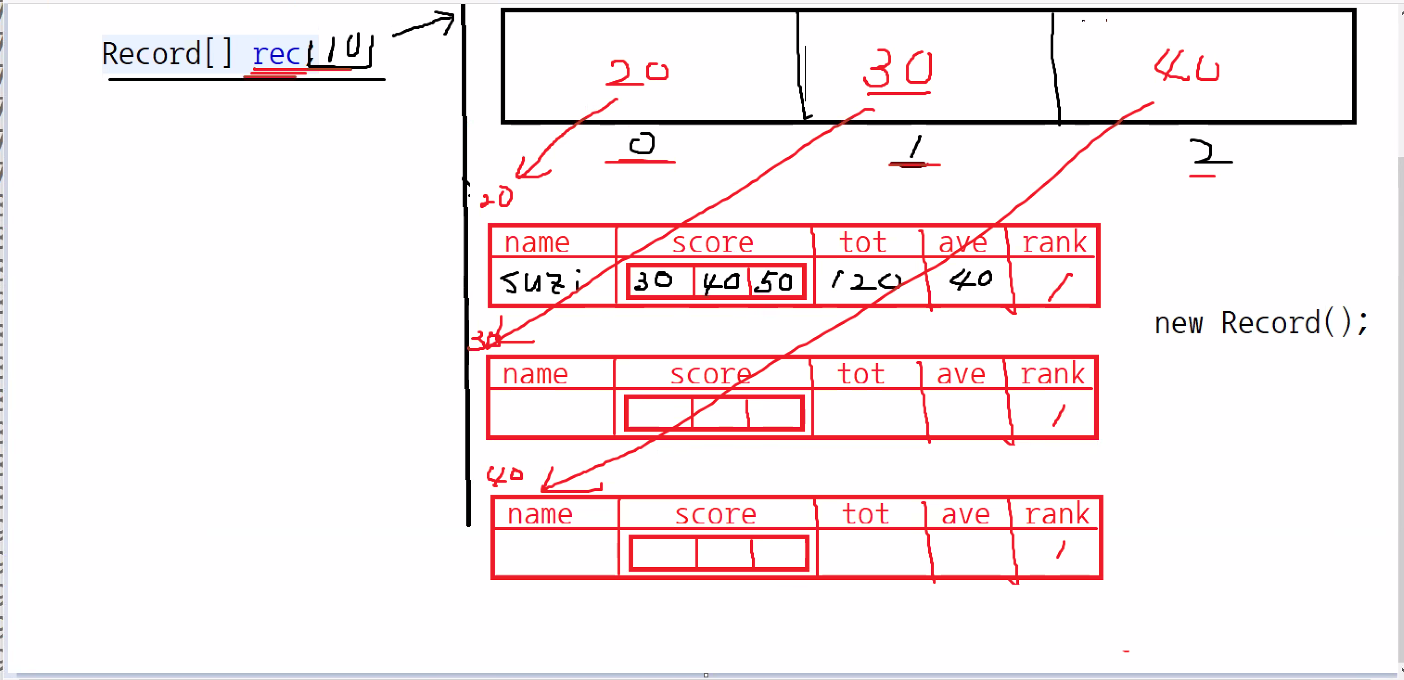 Record[] rec 10
20 30 40
0 1 2
20
name score tot ave rank
suzi 30 40 50 120 40 1
new Record();
30
name score tot ave rank
1
40
name score tot ave rank
1